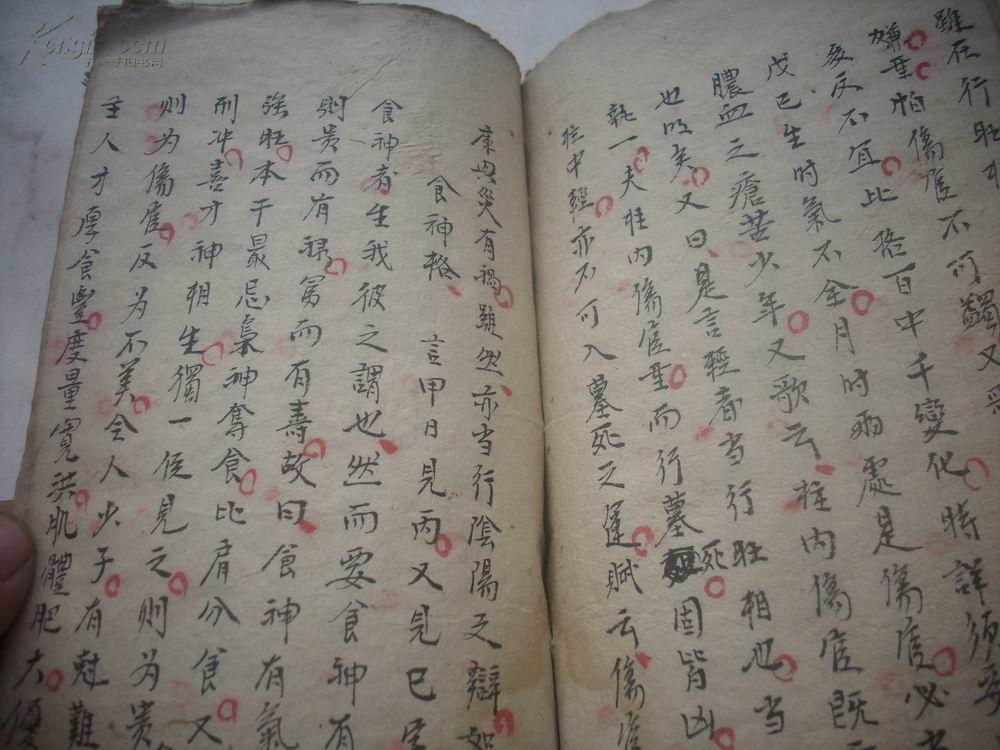 雖在行旺相
嫌重怕傷官不可蠲又要
亥反不宜比格百中千變化時詳須要
戊己生時氣不全月时兩處是傷官必
膿血之瘡苦少年又歌云柱内傷官既
也明矣又曰是言輕者当行旺相也当
執一夫柱内傷官重而行墓死固皆凶
柱中輕亦不可入墓死之運賦云傷官
康毋災有禍雖然亦当行陰陽之辯
食神格 言甲日見丙又見巳
食神者生我彼之謂也然而要食神有
則貴而有祿富而有壽故曰食神有氣
強旺本干最忌梟神奪食比肩分食又
刑冲喜才神相生獨一位見之則为貴
則为傷官反为不美令人少子有尅難
主人才厚食豐度量寬洪肌體肥大優
Kongfz.com